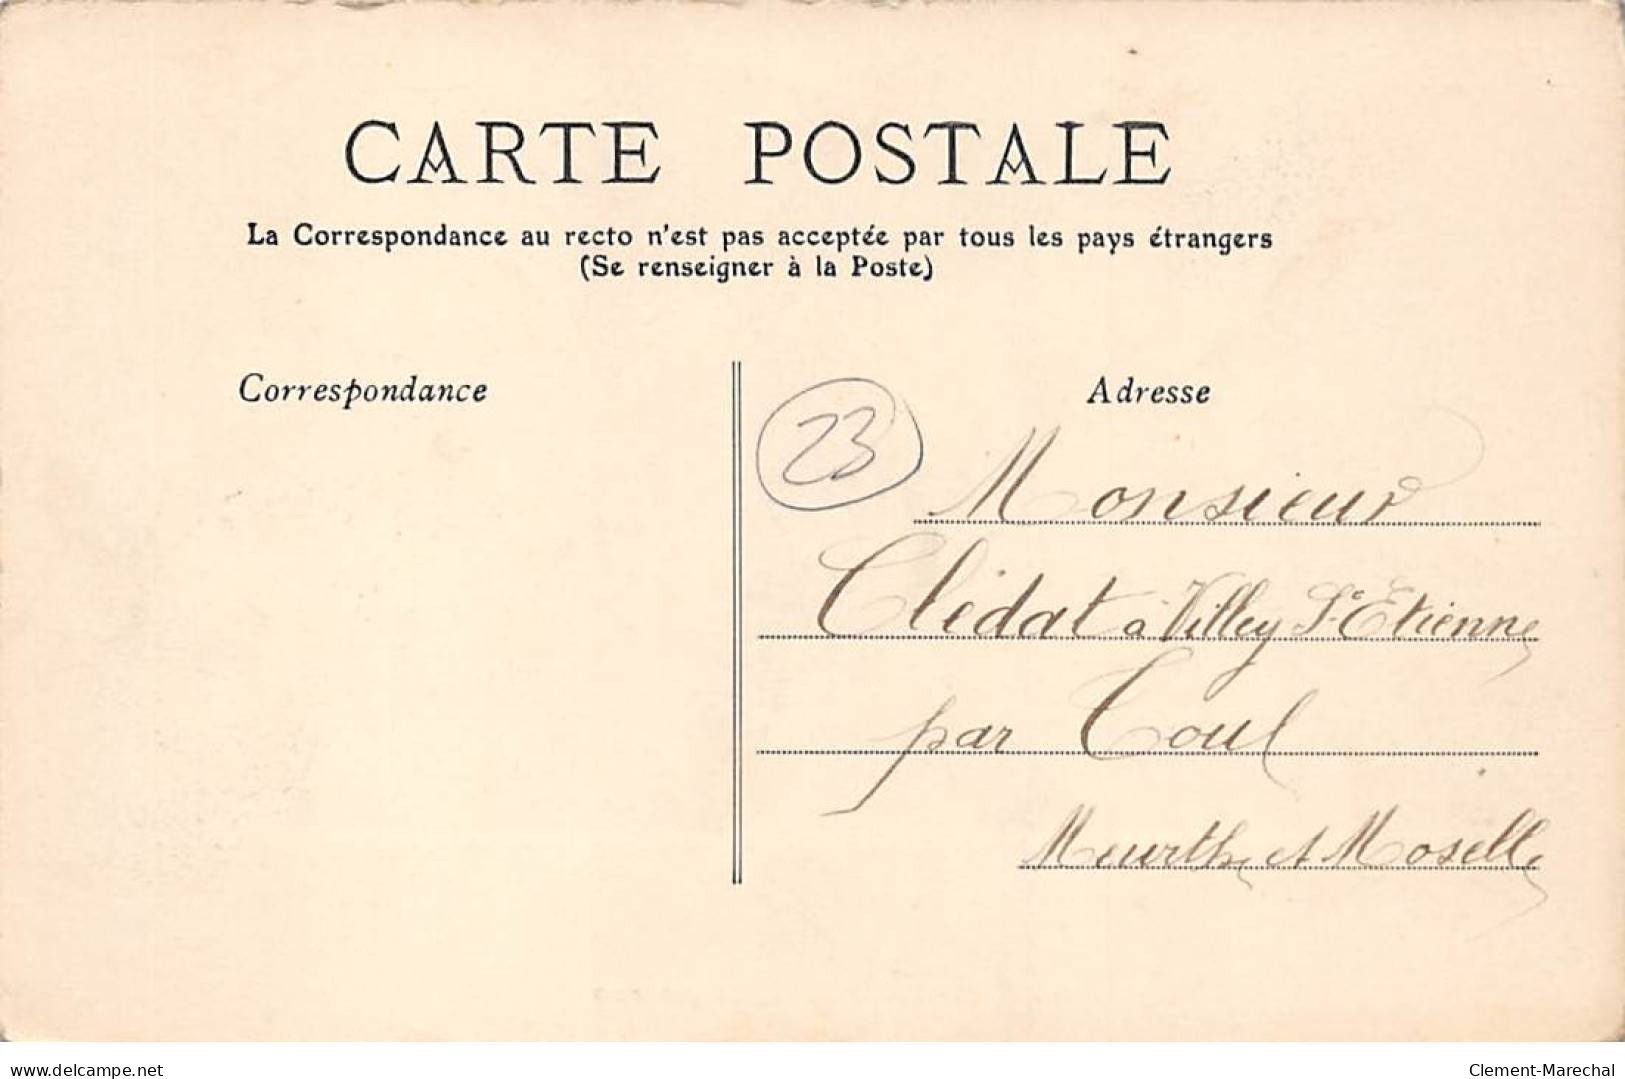 CARTE POSTALE
La Correspondance au recto n'est pas acceptée par tous les pays étrangers
(Se renseigner à la Poste)
Correspondance
Adresse
23
Monsieur
Clédat à Villey St Etienne
par Toul
Meurthe et Moselle
www.delcampe.net
Clement-Marechal